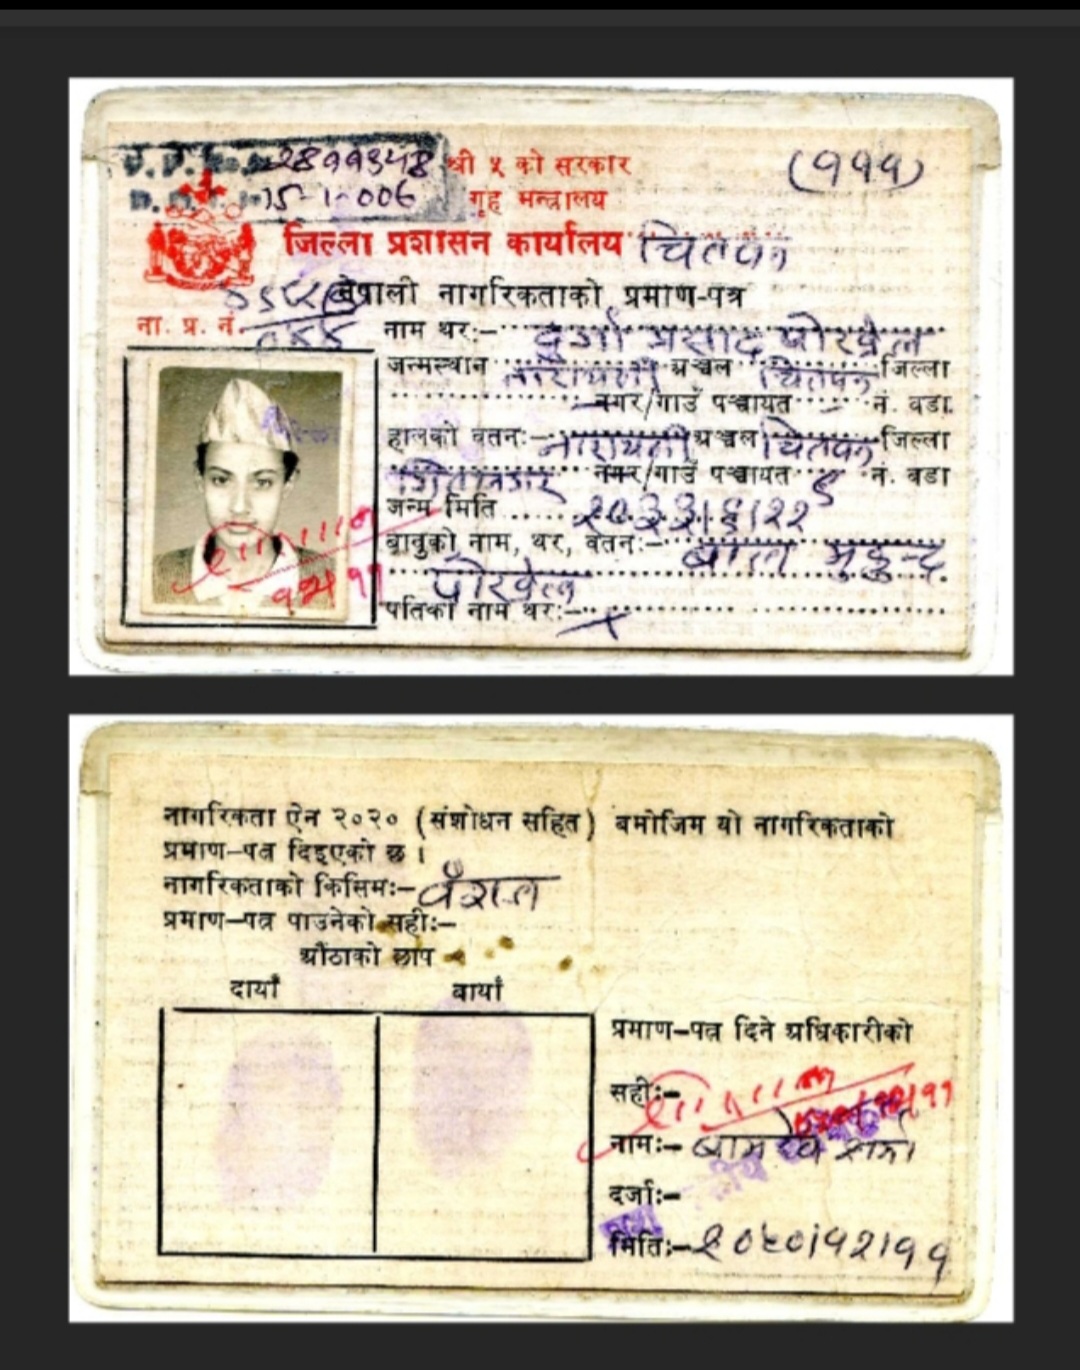 2811348
15-1-006
श्री ५ को सरकार
(१११)
गृह मन्त्रालय
जिल्ला प्रशासन कार्यालय चितवन
नेपाली नागरिकताको प्रमाण-पत्र
ना. प्र. नं.
नाम थर:- दुर्गा प्रसाद पोखरेल
जन्मस्थान नारायणी अञ्चल चितवन जिल्ला
नगर/गाउँ पञ्चायत - नं. वडा
हालको वतन:- नारायणी अञ्चल चितवन जिल्ला
नगर/गाउँ पञ्चायत नं. वडा
जन्म मिति २०३३।६।२२
बाबुको नाम, थर, वतन:- बाल मुकुन्द
पोखरेल
पतिको नाम थर:- x
नागरिकता ऐन २०२० (संशोधन सहित) बमोजिम यो नागरिकताको
प्रमाण-पत्र दिइएको छ ।
नागरिकताको किसिम:- वंशज
प्रमाण-पत्र पाउनेको सही:-
औंठाको छाप
दायाँ बायाँ
प्रमाण-पत्र दिने अधिकारीको
सही:-
नाम:- बामदेव शर्मा
दर्जा:-
मिति:- २०५०।१२।११